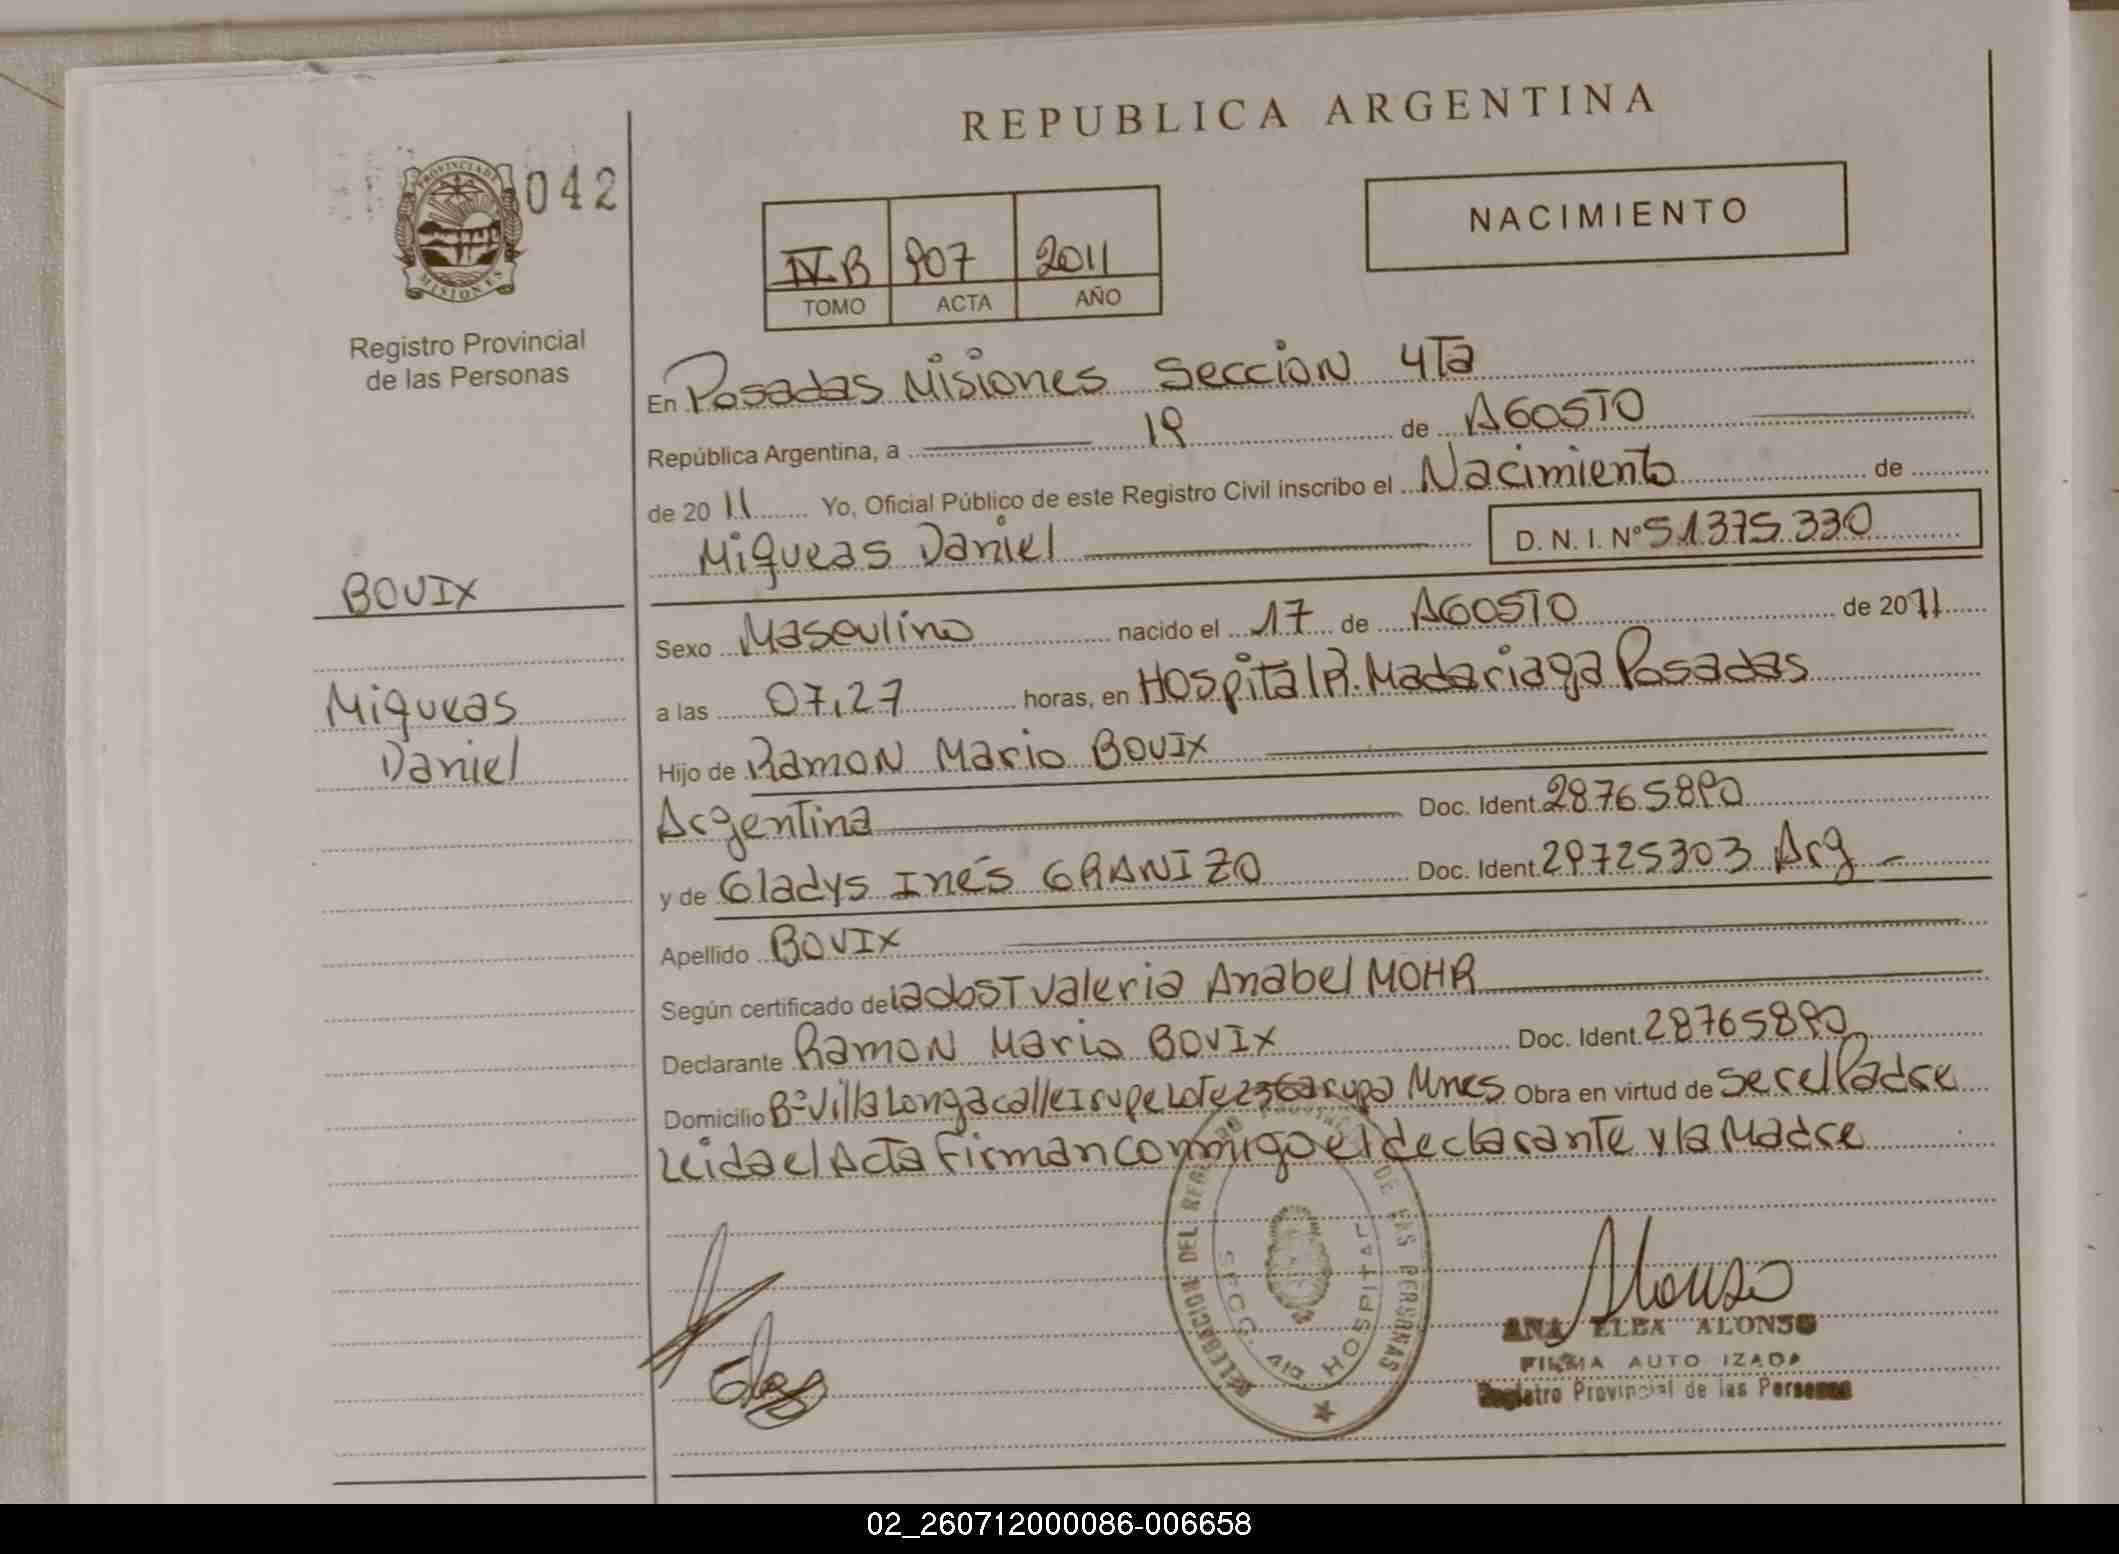 REPUBLICA ARGENTINA
PROVINCIA DE
MISIONES
042
NACIMIENTO
IV B 907 2011
TOMO ACTA AÑO
Registro Provincial
de las Personas
En Posadas Misiones Seccion 4Ta
República Argentina, a 19 de AGOSTO
de 2011 Yo, Oficial Público de este Registro Civil inscribo el Nacimiento de
Miqueas Daniel D. N. I. Nº 51.375.330
BOVIX
Miqueas
Daniel
Sexo Masculino nacido el 17 de AGOSTO de 2011
a las 07,27 horas, en Hospital R. Madariaga Posadas
Hijo de Ramon Mario BOVIX
Argentina Doc. Ident. 28765890
y de Gladys Inés GRANIZO Doc. Ident. 29725303 Arg
Apellido BOVIX
Según certificado de la obST Valeria Anabel MOHR
Declarante Ramon Mario BOVIX Doc. Ident. 28765890
Domicilio Bº Villa Longa calle Irupe Lote 23 Garupa Mnes Obra en virtud de ser el Padre
Leida el Acta Firman conmigo el declarante y la Madre
DEL DE LAS PERSONAS
HOSPITAL
Alonso
ANA ELBA ALONSO
FIRMA AUTORIZADA
Registro Provincial de las Personas
02_260712000086-006658